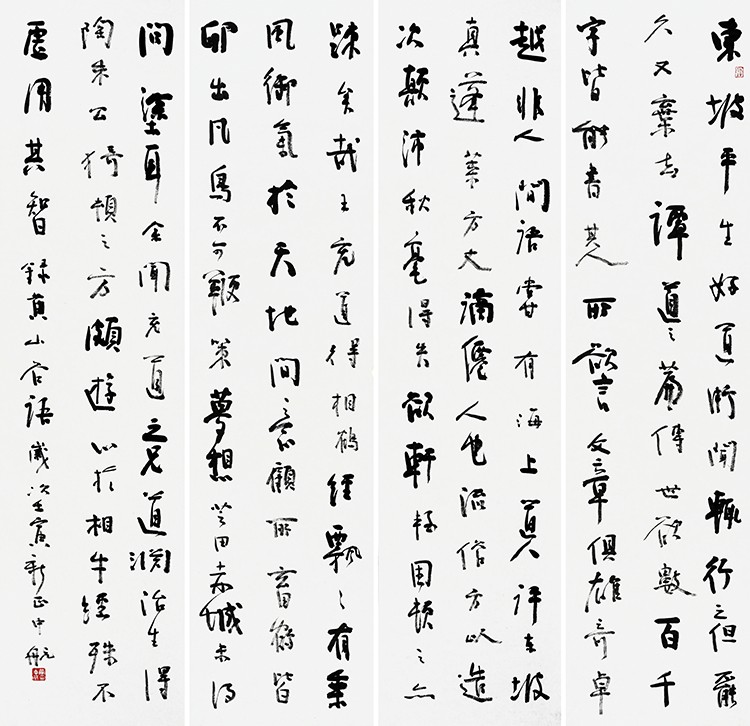 東坡平生好道術聞輒行之但不能
久又棄去譚道之篇傳世欲數百千
字皆能書其人所欲言文章俱雄奇卓
越非人間語嘗有海上道人評東坡
真蓬萊方丈謫僊人也流俗方以造
次顛沛秋毫得失欲軒輊困頓之亦
疎矣哉王充道得相鶴經飄〻有乘
風御氣於天地間之意顧所畜鶴皆
卵出凡鳥不可鞭策夢想芝田赤城未得
問塗耳今聞充道之兄道淵治生得
陶朱公猗頓之方顧遊心於相牛經殊不
虛用其智錄黃山谷語歲次壬寅新正中航